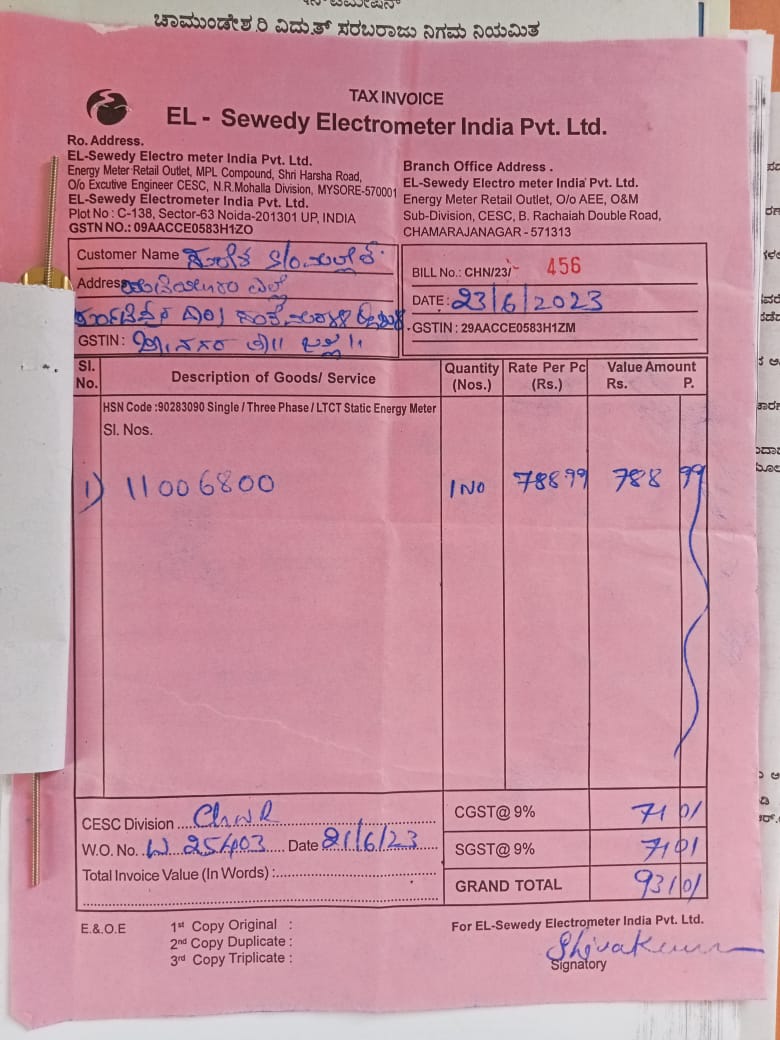 ಚಾಮುಂಡೇಶ್ವರಿ ವಿದ್ಯುತ್ ಸರಬರಾಜು ನಿಗಮ ನಿಯಮಿತ
TAX INVOICE
EL - Sewedy Electrometer India Pvt. Ltd.
Ro. Address.
EL-Sewedy Electro meter India Pvt. Ltd.
Energy Meter Retail Outlet, MPL Compound, Shri Harsha Road,
O/o Excutive Engineer CESC, N.R.Mohalla Division, MYSORE-570001
EL-Sewedy Electrometer Pvt. Ltd.
Plot No : C-138, Sector-63 Noida-201301 UP, INDIA
GSTN NO.: 09AACCE0583H1ZO
Branch Office Address .
EL-Sewedy Electro meter India Pvt. Ltd.
Energy Meter Retail Outlet, O/o AEE, O&M
Sub-Division, CESC, B. Rachaiah Double Road,
CHAMARAJANAGAR - 571313
Customer Name S/o
Address
GSTIN :
BILL No.: CHN/23/- 456
DATE : 23/6/2023
GSTIN : 29AACCE0583H1ZM
Sl. No. Description of Goods/ Service Quantity (Nos.) Rate Per Pc (Rs.) Value Amount Rs. P.
HSN Code :90283090 Single / Three Phase / LTCT Static Energy Meter
Sl. Nos.
1) 11006800 1 No 788 99 788 99
CESC Division ChNR
CGST@ 9% 71 01
W.O. No. W 25403 Date 21/6/23
SGST@ 9% 71 01
Total Invoice Value (In Words) :
GRAND TOTAL 931 01
E.&.O.E
1st Copy Original :
2nd Copy Duplicate :
3rd Copy Triplicate :
For EL-Sewedy Electrometer India Pvt. Ltd.
Shivakumar
Signatory